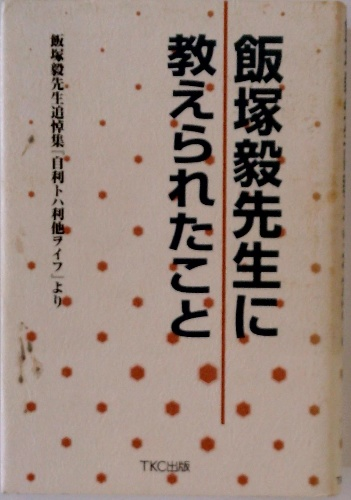 飯塚毅先生に
教えられたこと
飯塚毅先生追悼集「自利トハ利他ヲイフ」より
TKC出版